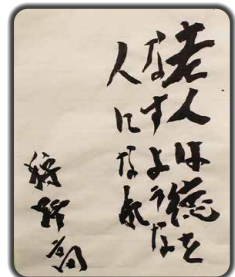 老人は徳を
なすような
人になれ